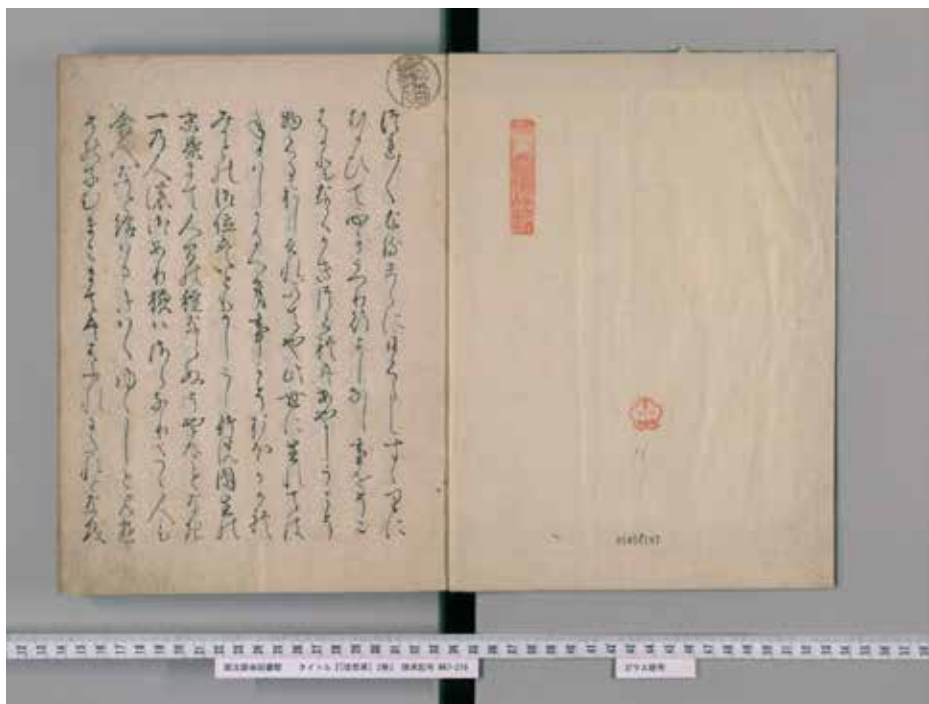 つれ〳〵なるまゝに日くらしすゝりに
むかひて心にうつり行よしなし事をそこ
はかとなくかきつくれはあやしうこそ
物くるおしけれいてや此世に生れては
ねかはしかるへき事こそおほかめれ
みかとの御位はいともかしこし竹の園生の
末葉まて人間の種ならぬそやんことなき
一の人の御あり様はさらなりたゝ人も
舎人なと給はるきははゆゝしと見ゆ
その子むまこまてははふれにたれと猶
国立国会図書館 タイトル『[徒然草] 2巻』 請求記号 WA7-216
ガラス使用